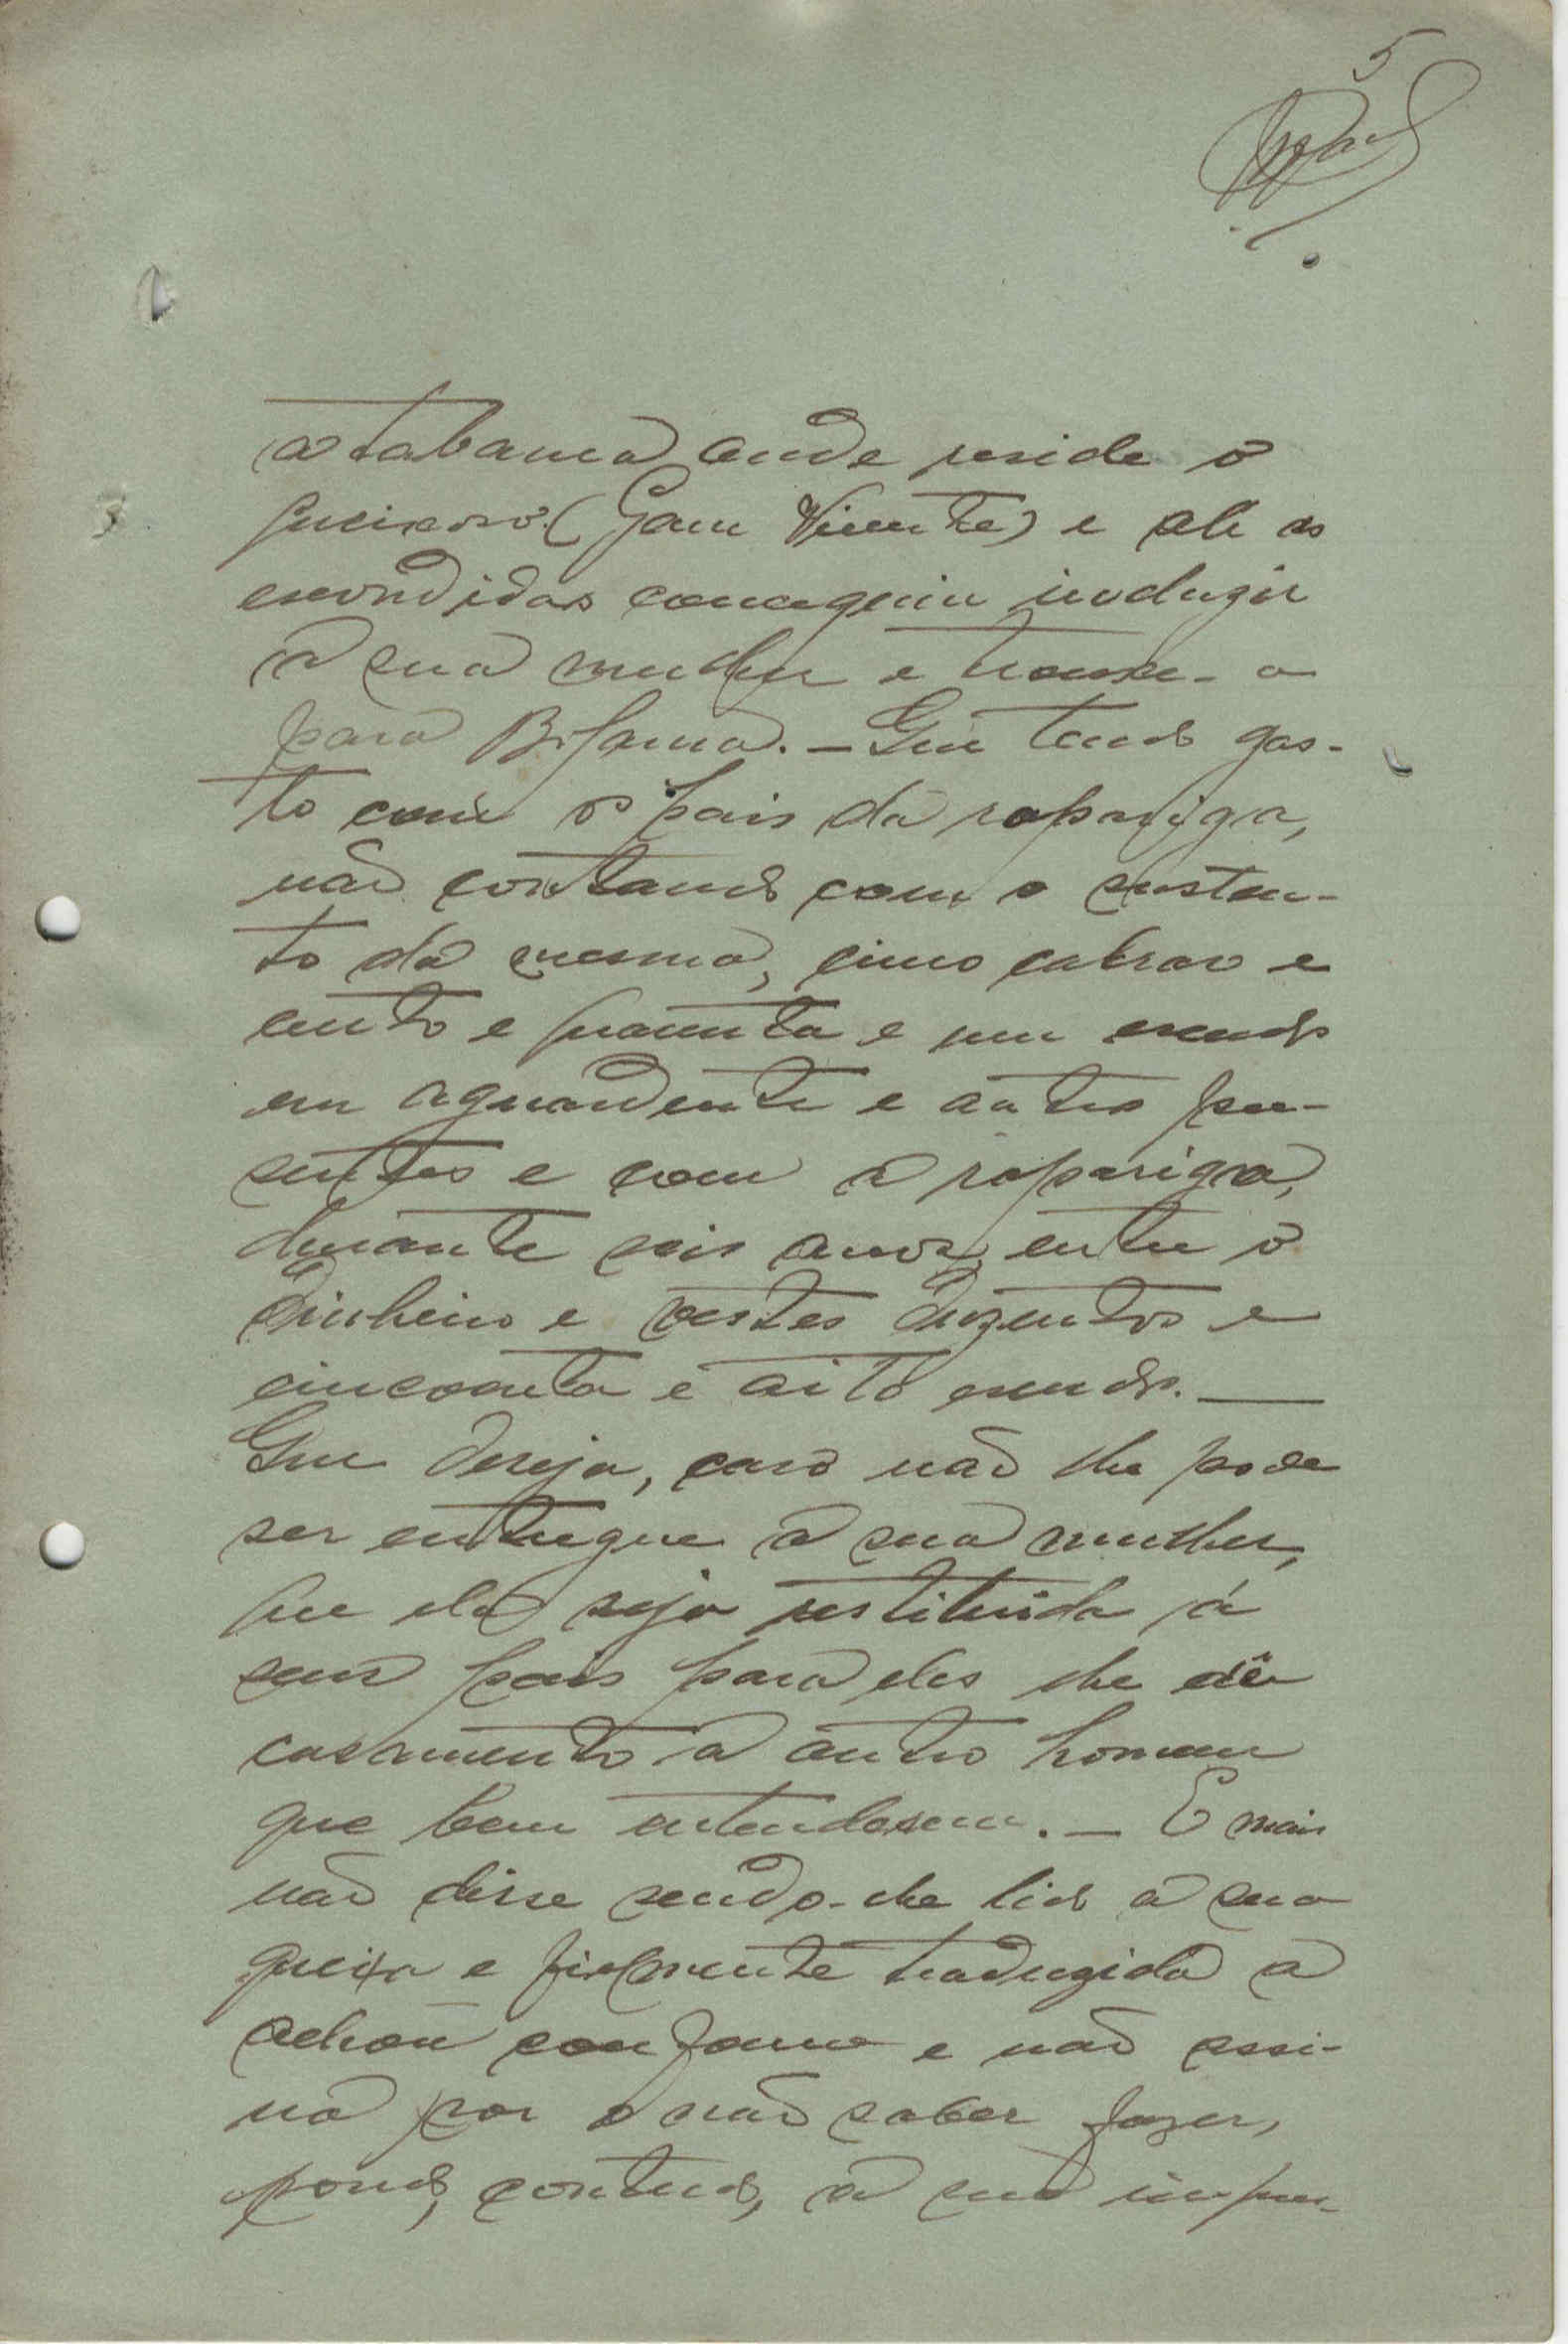 5
a tabanca onde reside o
queixoso (Gam Vicente) e ali ás
escondidas conseguiu induzir
a sua mulher e trouxe-a
para Bissama. — Que tendo gas-
to com os pais da rapariga,
não contando com o susten-
to da mesma, cinco cabras e
cento e quarenta e um escudos
em aguardente e outros pre-
sentes e com a rapariga,
durante seis anos, entre o
dinheiro e vestes duzentos e
cincoenta e oito escudos. —
Que deseja, caso não lhe pode
ser entregue a sua mulher,
que ela seja restituida á
seus pais para eles lhe dêr
casamento a outro homem
que bem entendessem. — E mais
não disse sendo-lhe lido a sua
queixa e fielmente traduzida a
achou conforme e não assi-
na por o não saber fazer,
pondo, contudo, a sua impres-